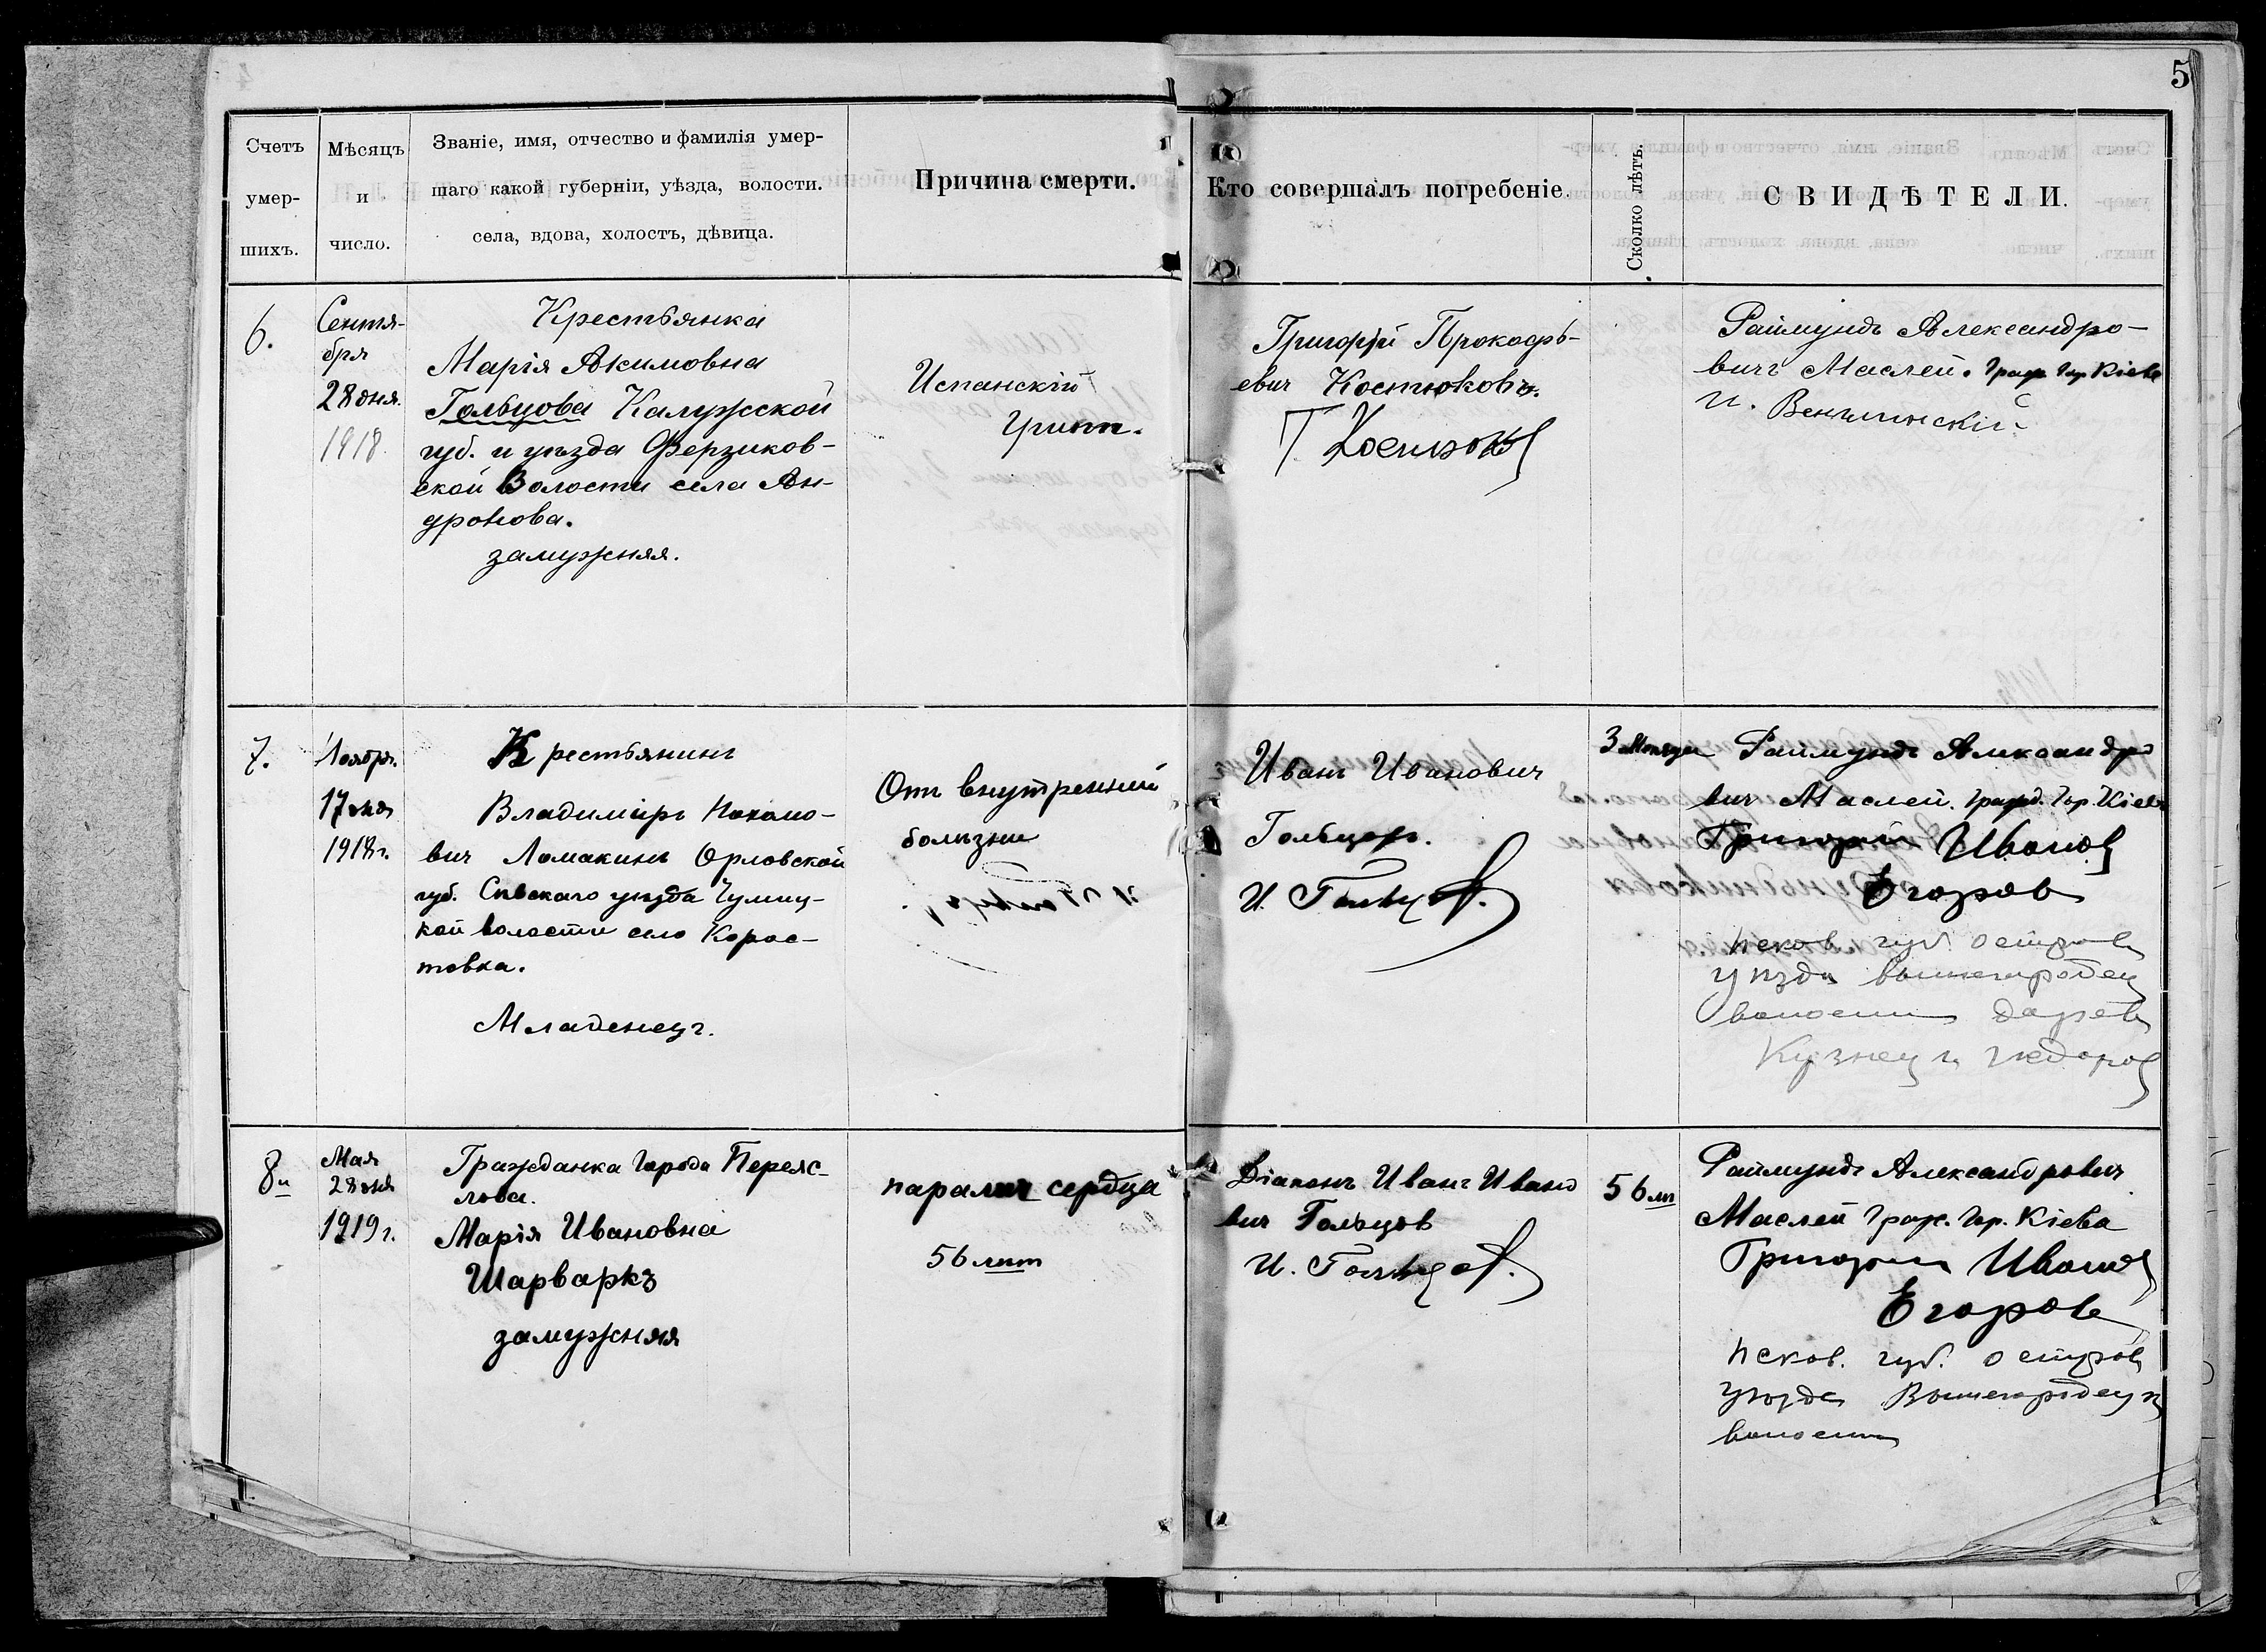 5
Счетъ
умер-
шихъ.
Мѣсяцъ
и
число.
Званіе, имя, отчество и фамилія умер-
шаго какой губерніи, уѣзда, волости.
села, вдова, холостъ, дѣвица.
Причина смерти.
Кто совершалъ погребеніе.
Сколько лѣтъ.
СВИДѢТЕЛИ.
6.
Сентя-
бря
28 дня.
1918
Крестьянка
Марія Акимовна
Гольцова Калужской
губ. и уѣзда Ферзиков-
ской Волости села Ан-
дронова.
замужняя.
Испанскій
Грипп.
Григорій Прокофь-
евич Костюковъ.
Г. Костюков
Раймундъ Александро-
вичъ Маслей. Граж. Гор. Кіева
И.
7.
Ноябр.
17 дня
1918 г.
Крестьянинъ
Владиміръ
вич Ломакинъ Орловской
губ. Сѣвскаго уѣзда
кой волости село Корос-
товка.
Младенецъ.
Отъ внутренній
болѣзни
Иванъ Иванович
Гольцов.
И. Гольцов.
3 Мѣсяца
Раймундъ Александро
вич Маслей. Гражд. Гор. Кіева
Григорий Иванов
Егоров
псков. губ. остров
уѣзда вышегородец
волости дерев
8й
Мая
28 дня
1919 г.
Гражданка Города Переяс-
лова.
Марія Ивановна
Шарваркъ
замужняя
паралич сердца
56 лѣт
Діаконъ Иванъ Ивано
вич Гольцов
И. Гольцов.
56 лѣ
Раймундъ Александрович
Маслей Граж. Гор. Кіева
Григорий Иванов
Егоров
псков. губ. остров
уѣзда Вышегородец
волости